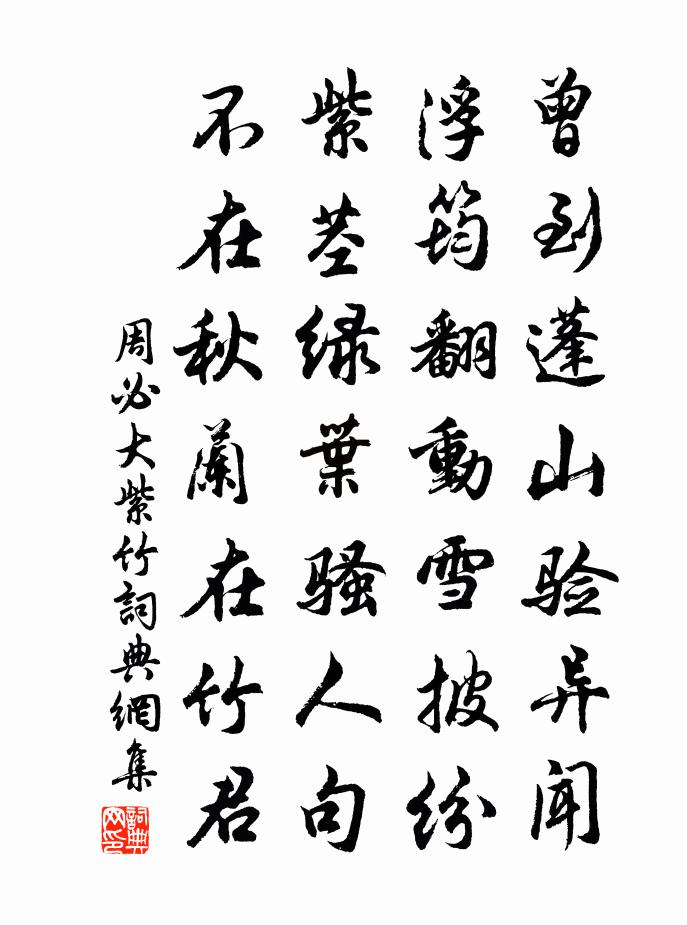 曾到蓬山验异闻
浮筠翻動雪披紛
紫茎绿葉骚人句
不在秋蘭在竹君
周必大紫竹詞典網集
詞典网印